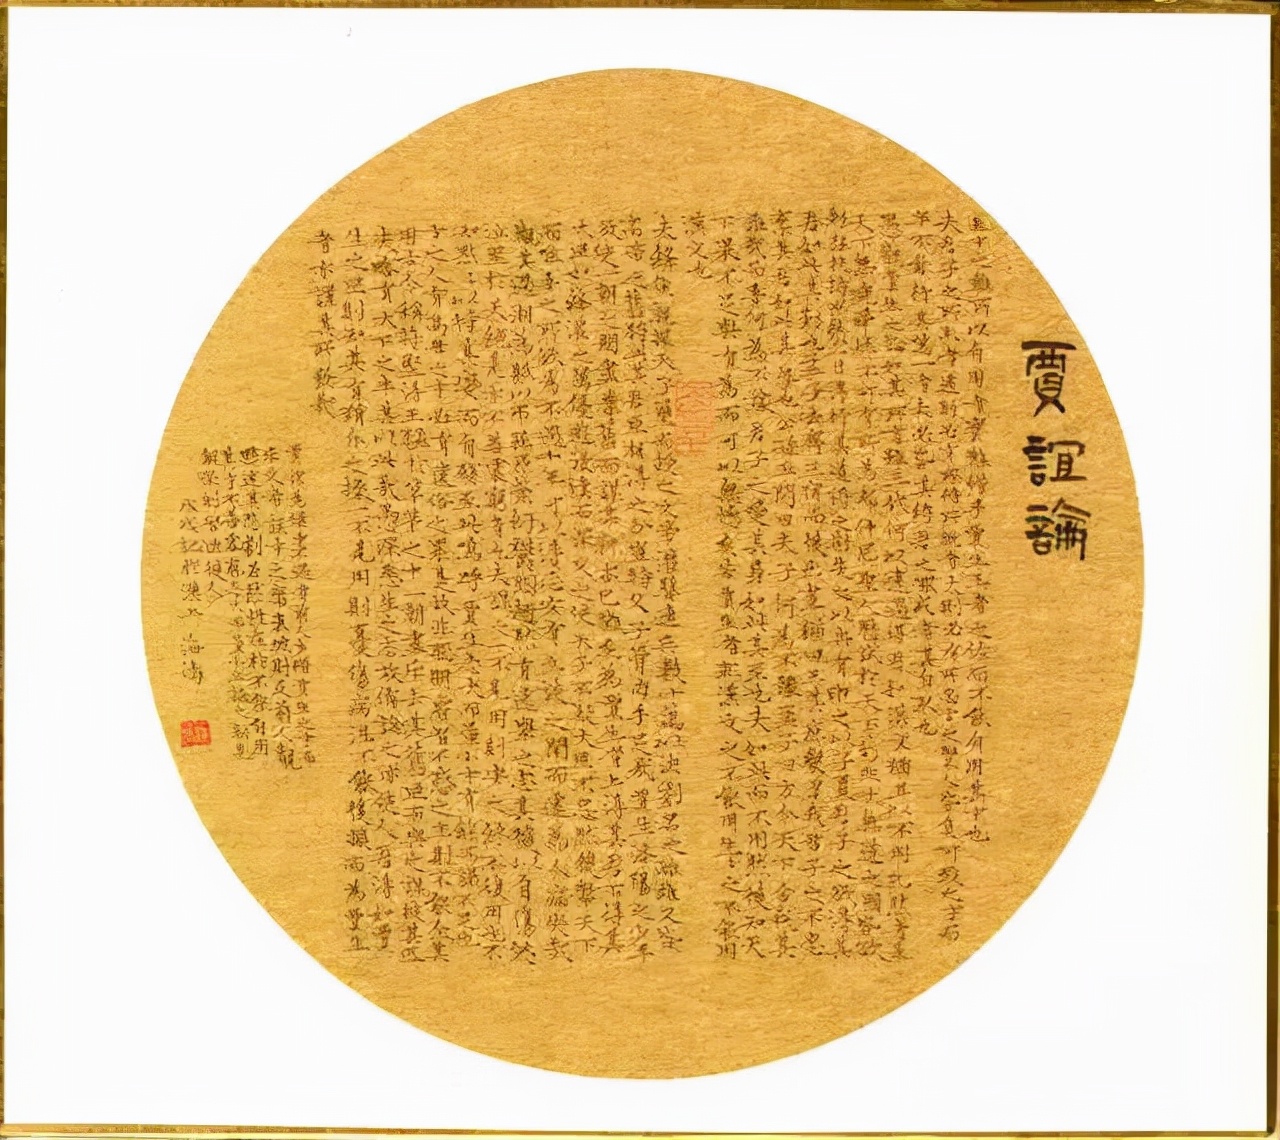 賈誼論
非才之難所以自用者實難惜乎賈生王者之佐而不能自用其才也
夫君子之所取者遠則必有所待所就者大則必有所忍古之賢人皆負可致之才而
卒不能行其萬一者未必皆其時君之罪或者其自取也
愚觀賈生之論如其所言雖三代何以遠過得君如漢文猶且以不用死然則是
天下無堯舜終不可有所為耶仲尼聖人歷試於天下苟非大無道之國皆欲
勉強扶持庶幾一日得行其道將之荊先之以冉有申之以子夏君子之欲得其
君如此其勤也孟子去齊三宿而後出晝猶曰王其庶幾召我君子之不忍
棄其君如此其厚也公孫丑問曰夫子何為不豫孟子曰方今天下舍我其
誰哉而吾何為不豫君子之愛其身如此其至也夫如此而不用然後知天
下果不足與有為而可以無憾矣若賈生者非漢文之不能用生生之不能用
漢文也
夫絳侯親握天子璽而授之文帝灌嬰連兵數十萬以決劉呂之雌雄又皆
高帝之舊將此其君臣相得之分豈特父子骨肉手足哉賈生洛陽之少年
欲使其一朝之間盡棄其舊而謀其新亦已難矣為賈生者上得其君下得其
大臣如絳灌之屬優游浸漬而深交之使天子不疑大臣不忌然後舉天下
而唯吾之所欲為不過十年可以得志安有立談之間而遽為人痛哭哉
觀其過湘為賦以弔屈原縈紆鬱悶趯然有遠舉之志其後以自傷哭
泣至於夭絕是亦不善處窮者也夫謀之一不見用則安知終不復用也不
知默默以待其變而自殘至此嗚呼賈生志大而量小才有餘而識不足也
古之人有高世之才必有遺俗之累是故非聰明睿智不惑之主則不能全其
用古今稱苻堅得王猛於草茅之中一朝盡斥去其舊臣而與之謀彼其匹
夫略有天下之半其以此哉愚深悲生之志故備論之亦使人君得如賈
生之臣則知其有狷介之操一不見用則憂傷病沮不能復振而為賈生
者亦謹其所發哉
海濤